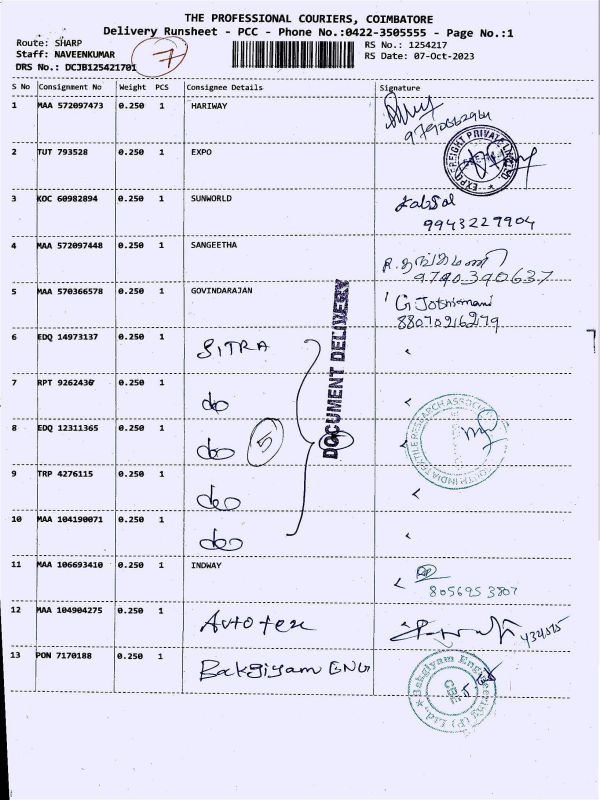 THE PROFESSIONAL COURIERS, COIMBATORE
Delivery Runsheet - PCC - Phone No.:0422-3505555 - Page No.:1
Route: SHARP
Staff: NAVEENKUMAR
DRS No.: DCJB125421701
7
RS No.: 1254217
RS Date: 07-Oct-2023
S No Consignment No Weight PCS Consignee Details Signature
1 MAA 572097473 0.250 1 HARIWAY
2 TUT 793528 0.250 1 EXPO
EXPO FREIGHT PRIVATE LIMITED
3 KOC 60982894 0.250 1 SUNWORLD
9943227904
4 MAA 572097448 0.250 1 SANGEETHA
R. தங்கமணி
9790390637
5 MAA 570366578 0.250 1 GOVINDARAJAN
G Jothimani
88070216279
DOCUMENT DELIVERY
6 EDQ 14973137 0.250 1 SITRA
7 RPT 9262436 0.250 1 do
8 EDQ 12311365 0.250 1 do
5
SOUTH INDIA TEXTILE RESEARCH ASSOCIATION
9 TRP 4276115 0.250 1 do
10 MAA 104190071 0.250 1 do
11 MAA 106693410 0.250 1 INDWAY
805695 3807
12 MAA 104904275 0.250 1 Autotex
13 PON 7170188 0.250 1 Bakgiyam ENG
Bakgiyam Engineering (P) Ltd.,
CBE